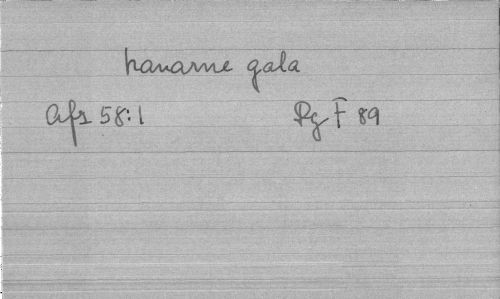 hanarne gala
Afs 58:1 Rg F 89